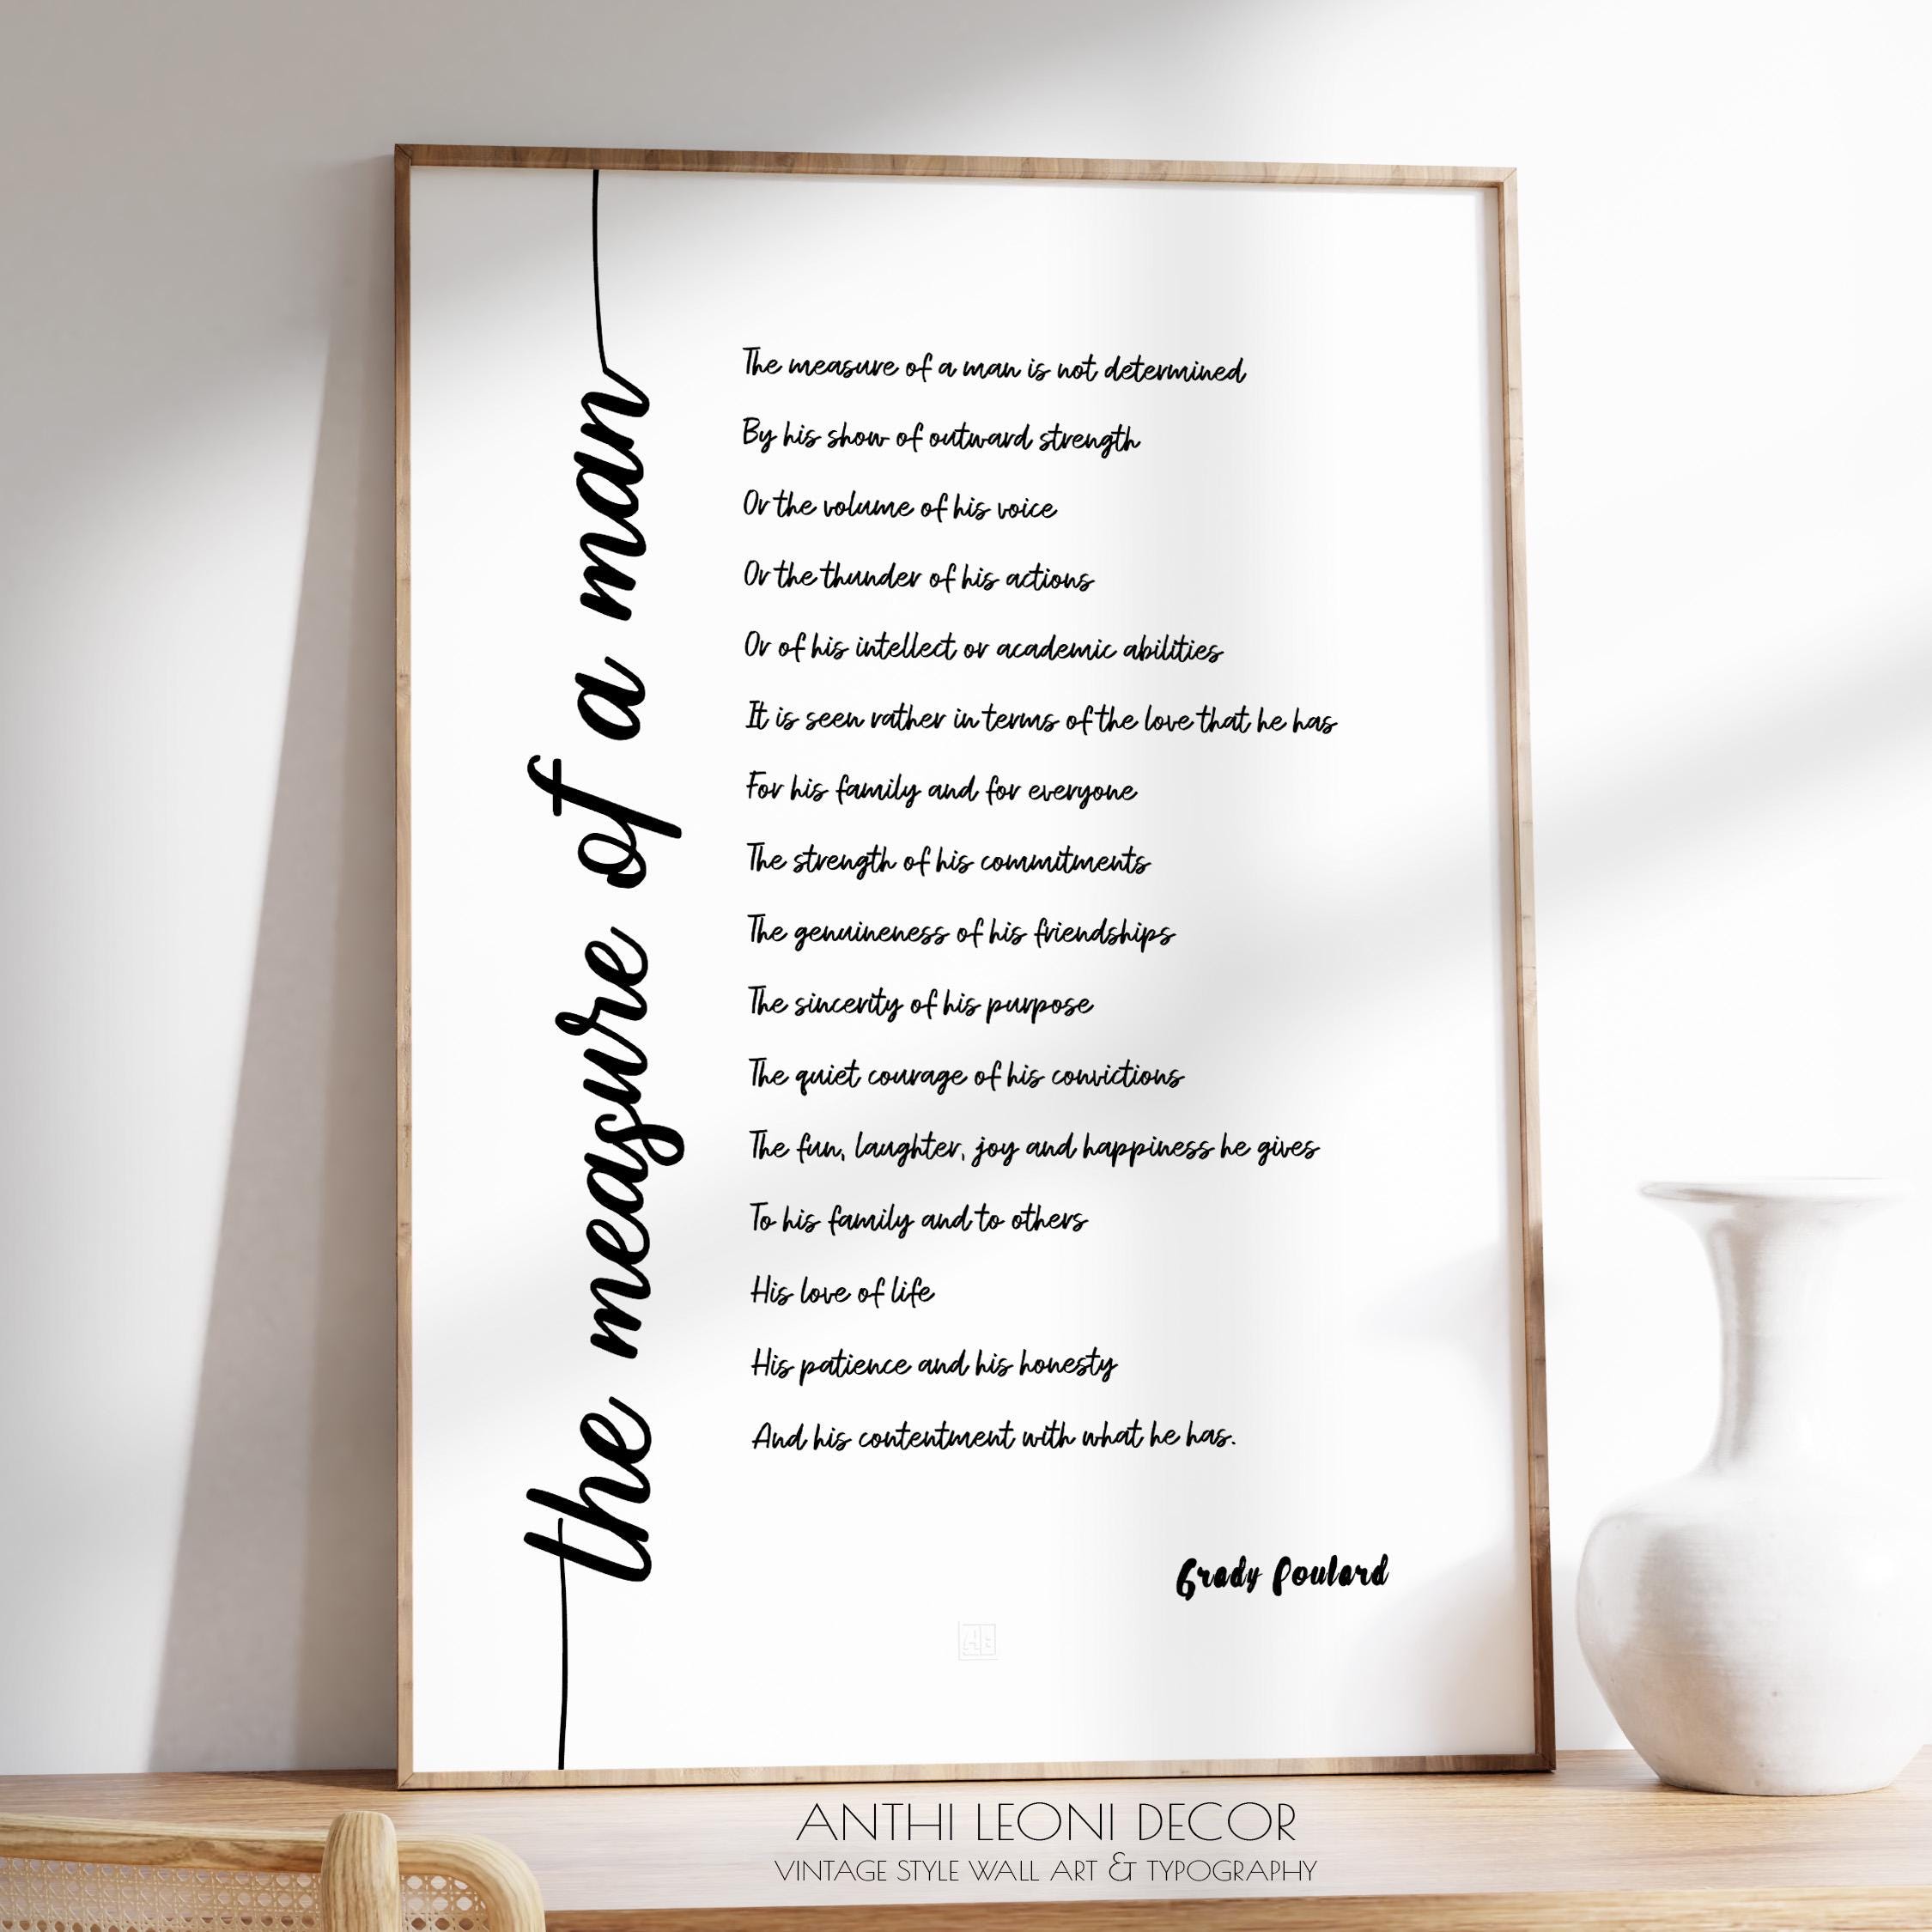 the measure of a man
The measure of a man is not determined
By his show of outward strength
Or the volume of his voice
Or the thunder of his actions
Or of his intellect or academic abilities
It is seen rather in terms of the love that he has
For his family and for everyone
The strength of his commitments
The genuineness of his friendships
The sincerity of his purpose
The quiet courage of his convictions
The fun, laughter, joy and happiness he gives
To his family and to others
His love of life
His patience and his honesty
And his contentment with what he has.
Grady Poulard
ANTHI LEONI DECOR
VINTAGE STYLE WALL ART & TYPOGRAPHY